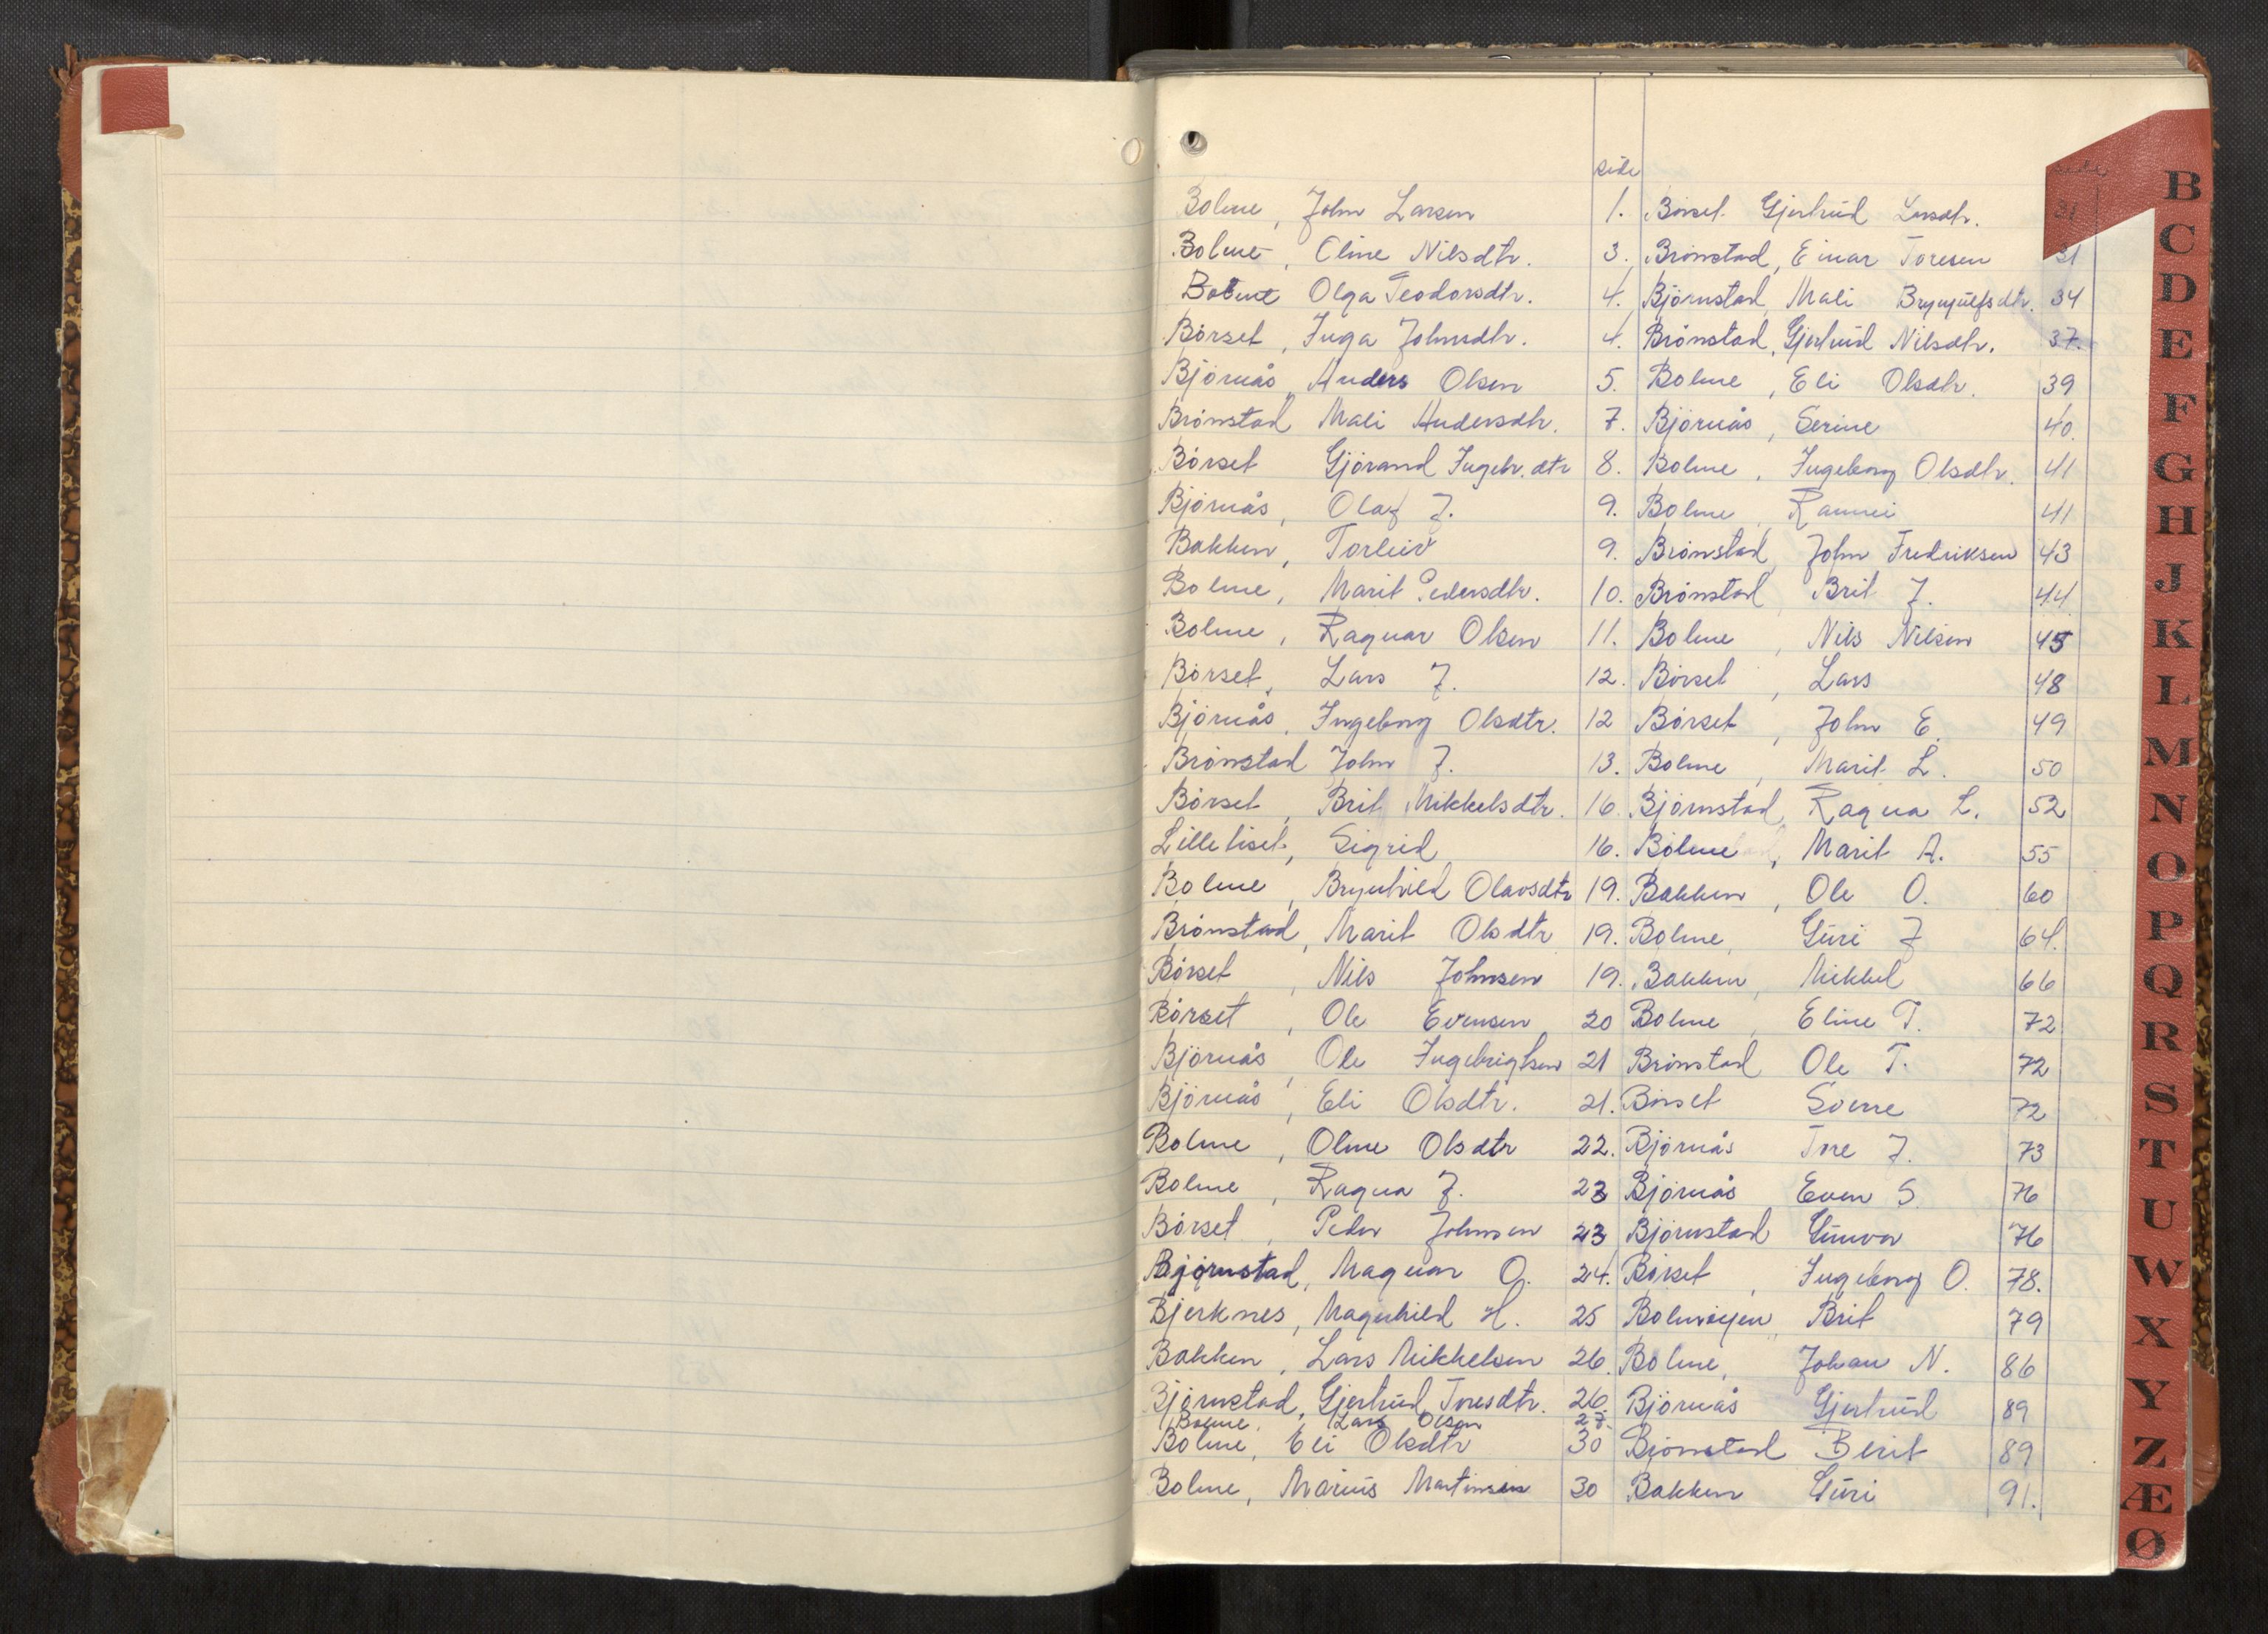 side
Bolme, John Larsen 1.
Bolme, Oline Nilsdtr. 3.
Bolme Olga Teodorsdtr. 4.
Börset, Inga Johnsdtr. 4.
Björnås, Anders Olsen 5.
Brönstad Mali Andersdtr. 7.
Börset Gjörand Ingebr.dtr 8.
Björnås, Olaf J. 9.
Bakken, Torleiv 9.
Bolme, Marit Pedersdtr. 10.
Bolme, Ragnar Olsen 11.
Börset, Lars J. 12.
Björnås, Ingeborg Olsdtr. 12
Brönstad John J. 13.
Börset, Brit Mikkelsdtr. 16.
Lilleliset, Sigrid 16.
Bolme, Brynhild Olavsdtr 19.
Brönstad, Marit Olsdtr 19.
Börset, Nils Johnsen 19.
Börset, Ole Evensen 20
Björnås, Ole Ingebrigtsen 21
Björnås, Eli Olsdtr. 21.
Bolme, Oline Olsdtr 22.
Bolme, Ragna J. 23
Börset, Peder Johnsen 23
Björnstad, Magnar O. 24.
Bjerknes, Magnhild H. 25
Bakken, Lars Mikkelsen 26
Björnstad, Gjertrud Toresdtr. 26.
Bolme, Lars Olsen 27.
Bolme, Eli Olsdtr 30
Bolme, Marius Martinsen 30
side
Börset Gjertrud Larsdtr. 31
Brönstad, Einar Toresen 31
Björnstad, Mali Brynjulfsdtr. 34
Brönstad, Gjertrud Nilsdtr. 37.
Bolme, Eli Olsdtr. 39
Björnås, Serine 40.
Bolme, Ingeborg Olsdtr. 41
Bolme, Rannei 41
Brönstad, John Fredriksen 43
Brönstad, Brit J. 44
Bolme, Nils Nilsen 45
Börset, Lars 48
Börset, John E. 49
Bolme, Marit L. 50
Björnstad, Ragna L. 52
Bolme, Marit A. 55
Bakken, Ole O. 60
Bolme, Guri J 64.
Bakken, Mikkel 66
Bolme, Eline T. 72
Brönstad Ole T. 72
Börset Sverre 72
Björnås Tore J. 73
Björnås Even S. 76
Björnstad Gunvor 76
Börset, Ingeborg O. 78.
Bolmvoijen, Brit 79
Bolme, Johan N. 86
Björnås Gjertrud 89
Björnstad Berit 89
Bakken Guri 91.
B
C
D
E
F
G
H
J
K
L
M
N
O
P
Q
R
S
T
U
W
X
Y
Z
Æ
Ø